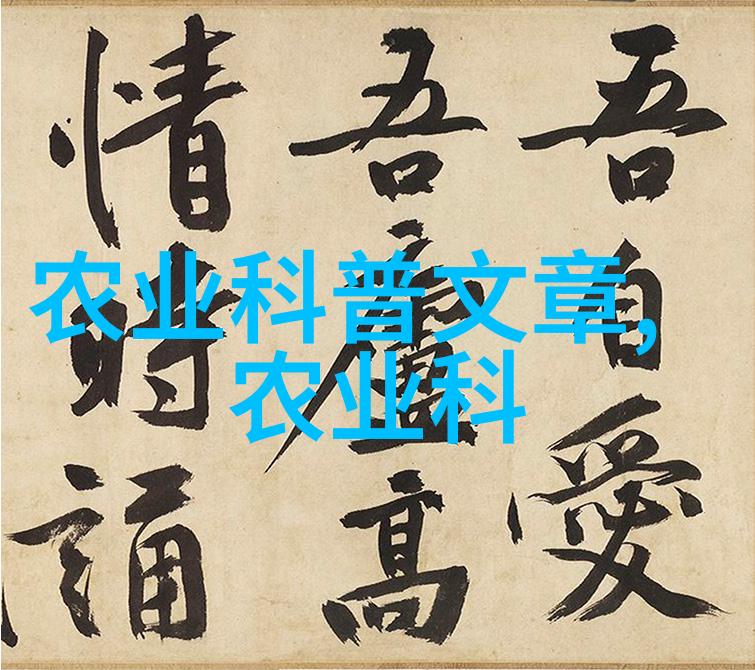 吾自愛
吾廬高
情時誦
农业科普文章,
农业科